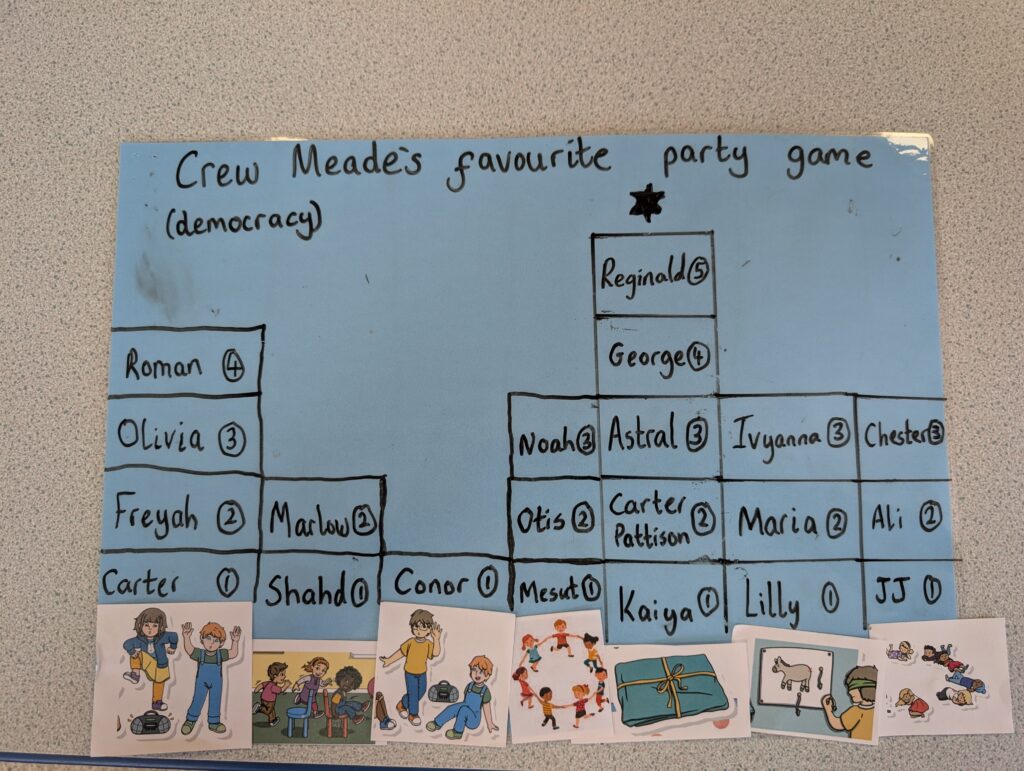 Crew Meade's favourite party game
(democracy)
Reginald 5
Roman 4
George 4
Olivia 3
Noah 3
Astral 3
Ivyanna 3
Chester 3
Freyah 2
Marlow 2
Otis 2
Carter
Pattison 2
Maria 2
Ali 2
Carter 1
Shahd 1
Conor 1
Mesut 1
Kaiya 1
Lilly 1
JJ 1